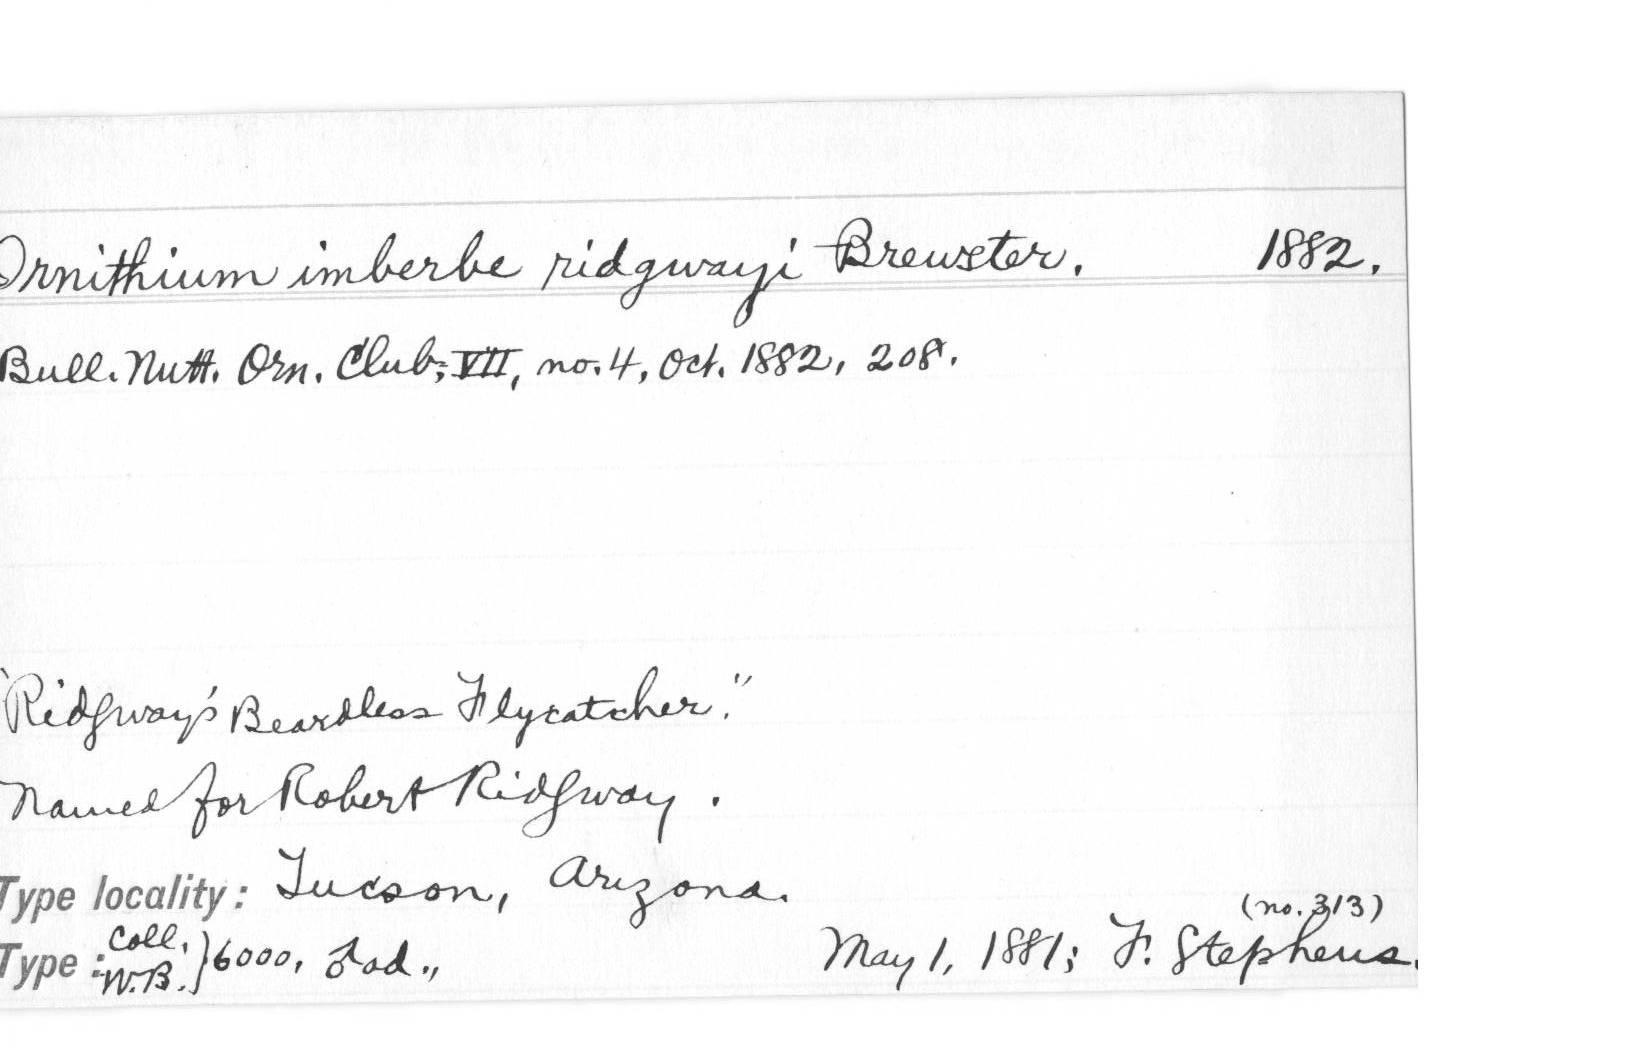 Ornithium imberbe ridgwayi Brewster. 1882.
Bull. Nutt. Orn. Club, VII, no. 4, Oct. 1882, 208.
"Ridgway's Beardless Flycatcher."
Named for Robert Ridgway.
Type locality: Tucson, Arizona.
(no. 313)
Type: Coll. W.B. } 6000, ♂ ad., May 1, 1881; F. Stephens.